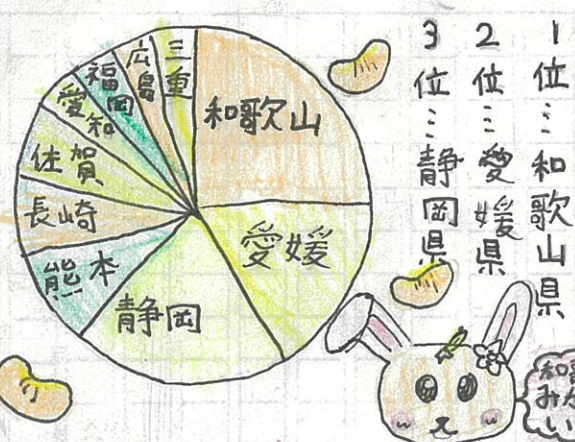 1位…和歌山県
2位…愛媛県
3位…静岡県
和歌山
愛媛
静岡
熊本
長崎
佐賀
愛知
福岡
広島
三重
み
い